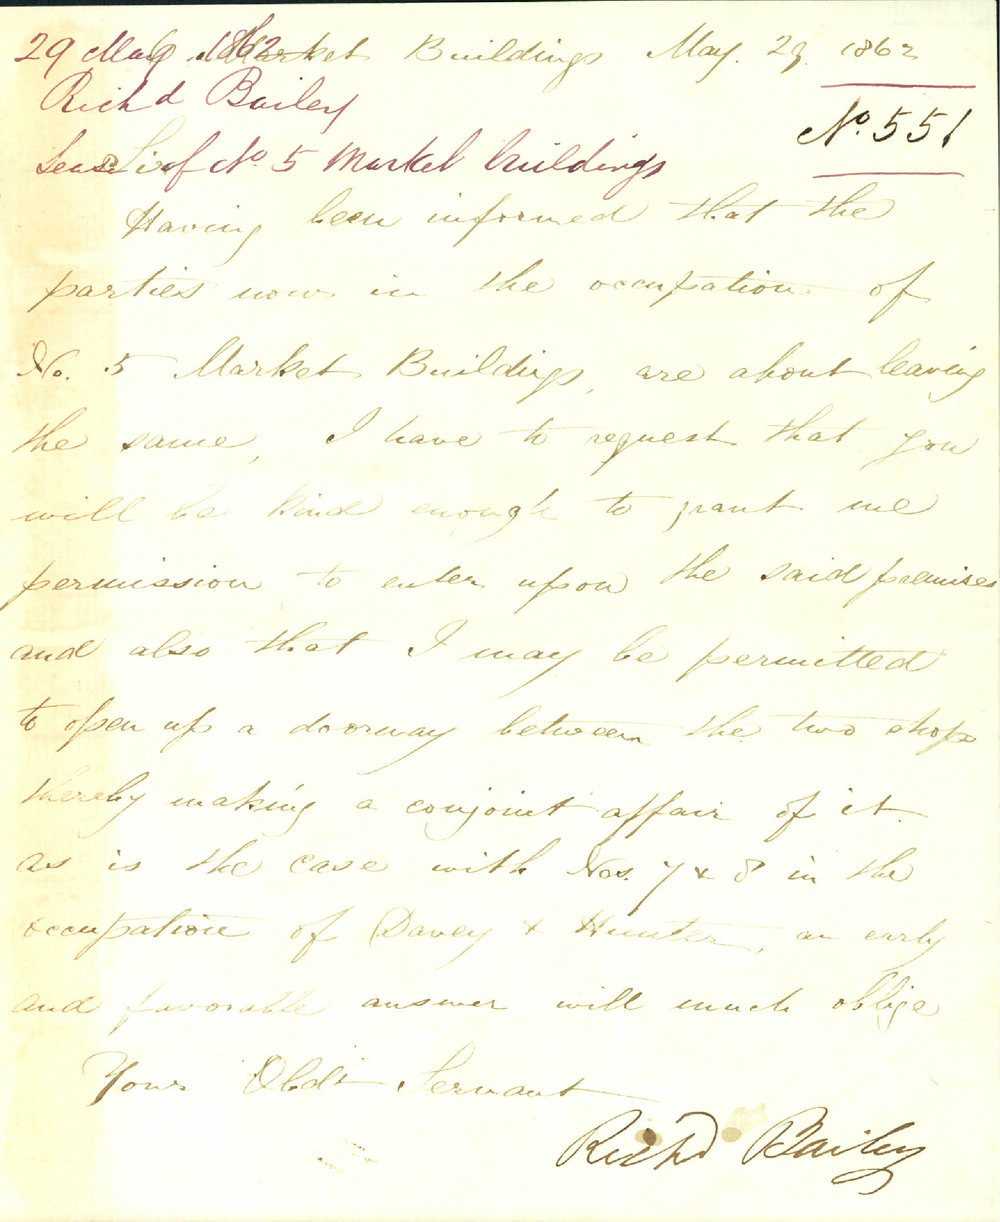 29 May 1862 Market Buildings May. 29. 1862
Richd Bailey
No. 551
Lease of No. 5 Market buildings
Sir
Having been informed that the
parties now in the occupation of
No. 5 Market Buildings, are about leaving
the same, I have to request that you
will be kind enough to grant me
permission to enter upon the said premises
and also that I may be permitted
to open up a doorway between the two shops
thereby making a conjoint affair of it.
as is the case with Nos. 7 & 8 in the
occupation of Davey & Hunter, an early
and favorable answer will much oblige
Your Obdt Servant
Richd Bailey